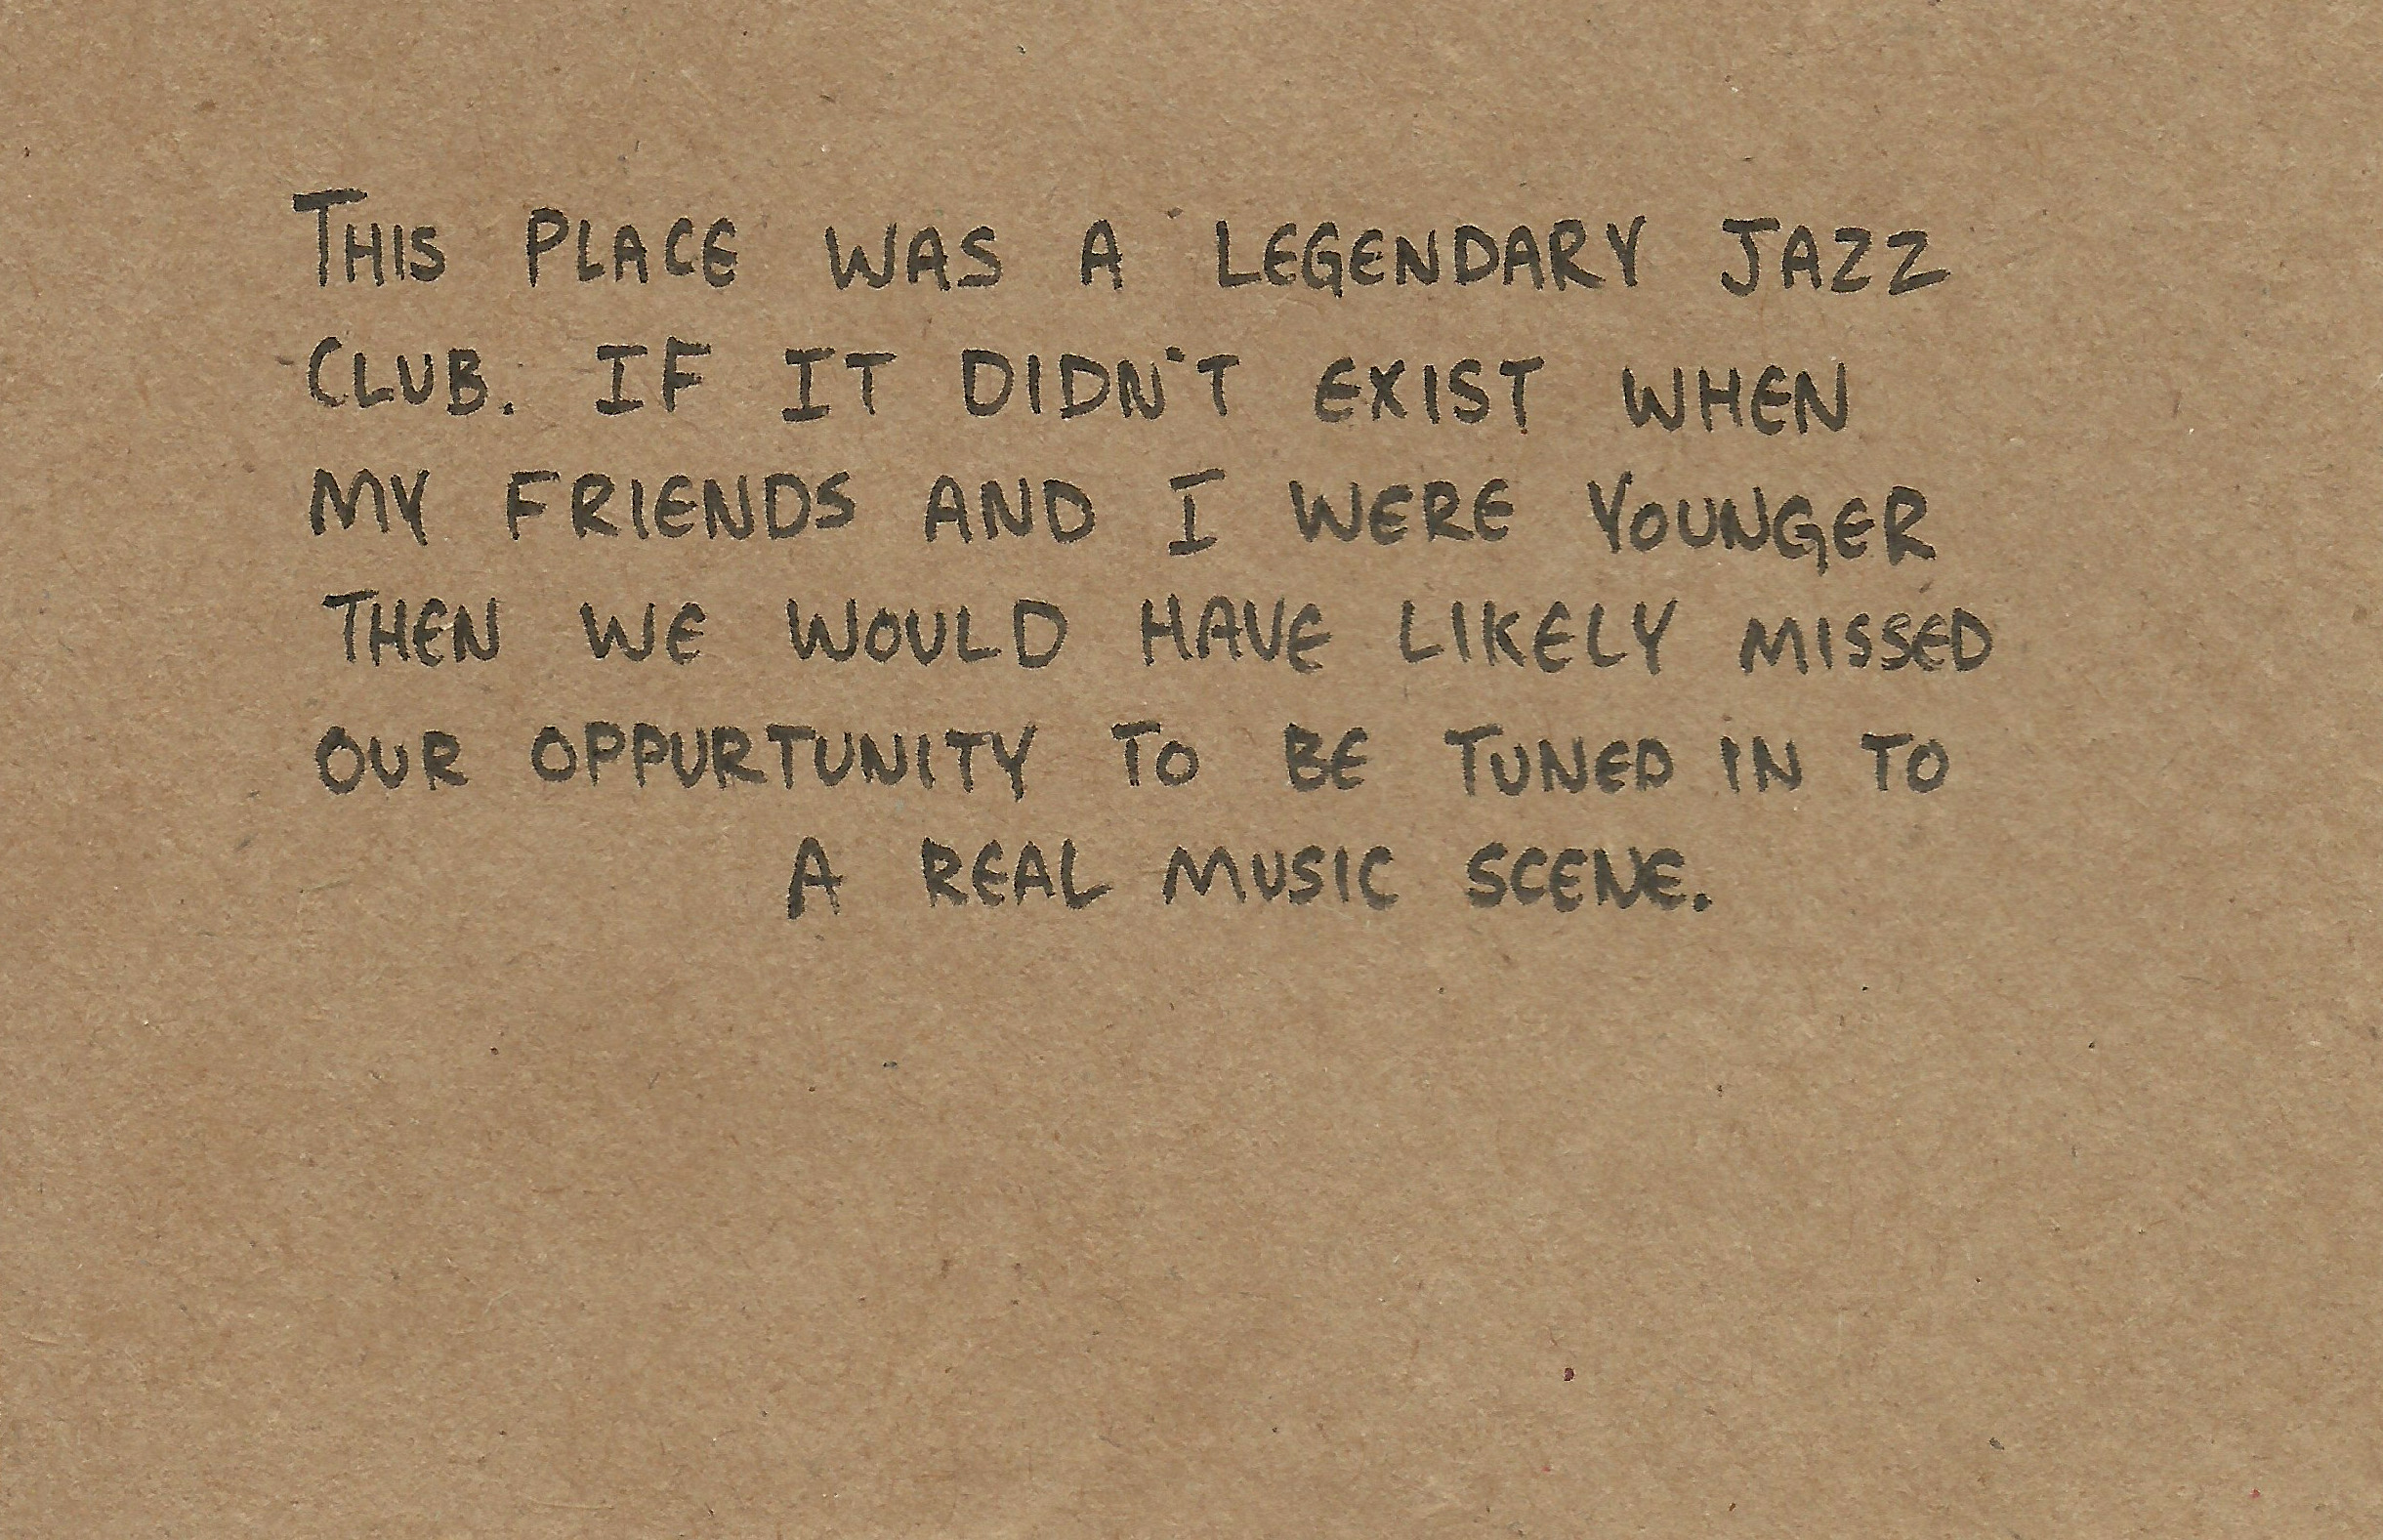 THIS PLACE WAS A LEGENDARY JAZZ
CLUB. IF IT DIDN'T EXIST WHEN
MY FRIENDS AND I WERE YOUNGER
THEN WE WOULD HAVE LIKELY MISSED
OUR OPPURTUNITY TO BE TUNED IN TO
A REAL MUSIC SCENE.